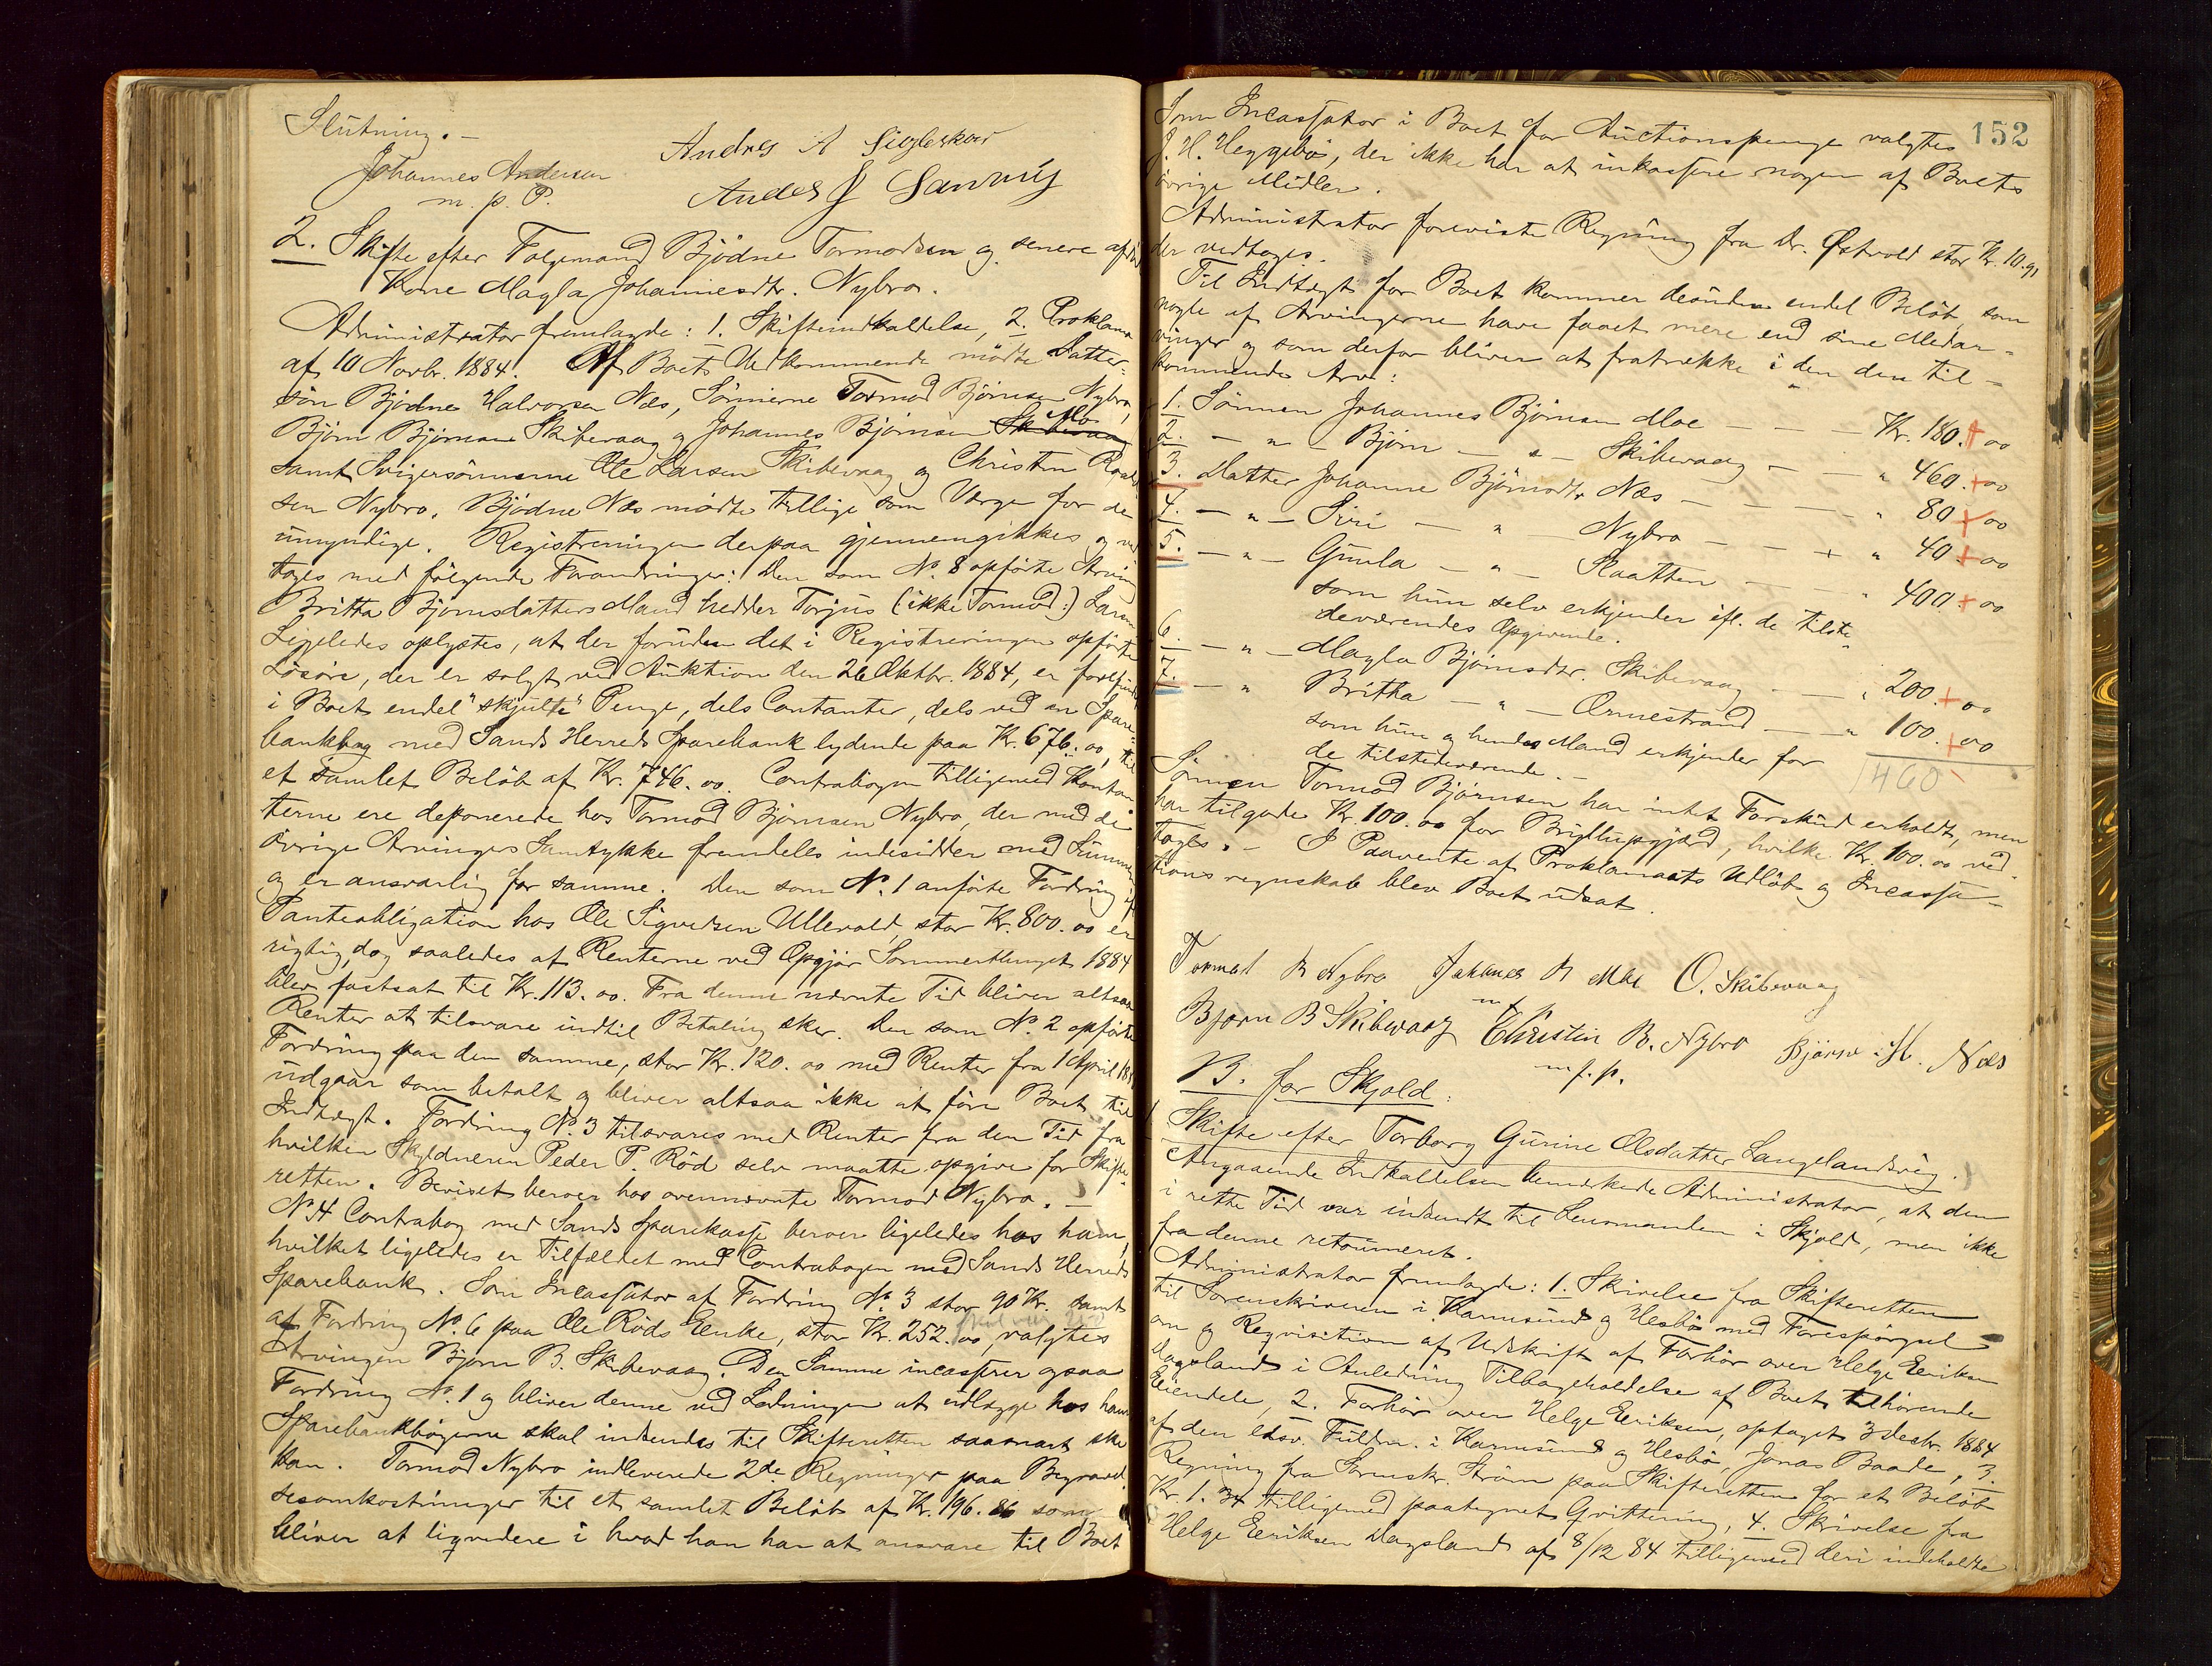 Slutning. –
Johannes Andersen
m. p. P.
Andres A Sigleskar
Andes J Sanvig
2. Skifte efter Folgemand Bjödne Tormodsen og senere afdöd
Kone Magla Johannesdtr. Nybro.
Administrator fremlagde: 1. Skifteindkaldelse, 2. Proklama
af 10 Novbr. 1884. Af Boets Vedkommende mödte Datter-
sön Bjödne Halvorsen Næs, Sönnerne Tormod Björnsen Nybro,
Björn Björnsen Skibevaag og Johannes Björnsen Mo
samt Svigersönnerne Ole Larsen Skibevaag og Christen Roald
sen Nybro. Bjödne Næs mödte tillige som Værge for de
umyndige. Registreringen derpaa gjennemgikkes og ved
toges med fölgende Forandringer: Den som No. 8 opförte Arving
Britta Björnsdatters Mand hedder Torjus (ikke Tormod:) Larsen
Ligeledes oplystes, at der foruden det i Registreringen opförte
Lösöre, der er solgt ved Auktion den 26 Oktbr. 1884, er forefundet
i Boet endel "skjulte" Penge, dels Contanter, dels ved en Spare-
bankbog med Sands Herreds Sparebank lydende paa Kr. 676.00, til
et samlet Belöb af Kr. 746.00. Contrabogen tilligemed Kontan
terne ere deponerede hos Tormod Björnsen Nybro, der med de
övrige Arvingers Samtykke fremdeles indesidder med Summen
og er ansvarlig for samme. Den som No. 1 anförte Fordring ifl
Panteobligation hos Ole Sigvedsen Ullevold, stor Kr. 800.00 er
rigtig, dog saaledes af Renterne ved Opgjör Sommerthinget 1884
blev fastsat til Kr. 113.00. Fra denne nævnte Tid bliver altsaa
Renter at tilsvare indtil Betaling sker. Den som No. 2 opförte
Fordring paa den samme, stor Kr. 120.00 med Renter fra 1 April 188
udgaar som betalt og bliver altsaa ikke at före Boet til
Indtægt. Fordring No. 3 tilsvares med Renter fra den Tid fra
hvilken Skyldneren Peder P. Röd selv maatte opgive for Skifte-
retten. Beviset beroer hos ovennævnte Tormod Nybro. –
No. 4 Contrabog med Sands Sparekasse beroer ligeledes hos ham,
hvilket ligeledes er Tilfældet med Contrabogen med Sands Herreds
Sparebank. Som Incassator af Fordring No. 3 stor 90 Kr. samt
af Fordring No. 6 paa Ole Röds Enke, stor Kr. 252.00, valgtes
Arvingen Björn B. Skibevaag. Den Samme incasserer ogsaa
Fordring No. 1 og bliver denne ved Lodningen at udlægge hos ham
Sparebankbögerne skal indsendes til Skifteretten saasnart ske
kan. Tormod Nybro indleverede 2de Regninger paa Begravel
sesomkostninger til et samlet Belöb af Kr. 196.86 som
bliver at liqvidere i hvad han har at ansvare til Boet
152
Som Incassator i Boet for Auctionspenge valgtes
J. H. Heggebö, der ikke har at inkassere nogen af Boets
övrige Midler.
Administrator foreviste Regning fra Dr. Östvold stor Kr. 10.91
der vedtoges.
Til Indtægt for Boet kommer desuden endel Belöb, som
nogle af Arvingerne have faaet mere end sine Medar-
vinger og som derfor bliver at fratrække i den dem til-
kommende Arv:
1. Sönnen Johannes Björnsen Moe – – – Kr. 180.00
2. – " – Björn – " – Skibevaag – – " 460.00
3. Datter Johanne Björnsdtr. Næs – – – " 80.00
4. – " – Siri – " Nybro – – – " 40.00
5. – " – Gunla – " – Slaatten – – " 400.00
som hun selv erkjender ifl. de tilste-
deværendes Opgivende.
6. – " – Magla Björnsdtr. Skibevaag – – " 200.00
7. – " Britha – " – Ornestrand – – " 100.00
som hun og hendes Mand erkjender for
de tilstedeværende. –
1460
Sönnen Tormod Björnsen har intet Forskud erholdt, men
har tilgode Kr. 100.00 for Bryllupsgjærd, hvilke Kr. 100.00 ved-
toges. – I Paavente af Proklamaets Udlöb og Incassa-
tionsregnskab blev Boet udsat.
Tormod B Nybro Johanes B Moe O. Skibevaag
m p p
Bjørn B Skibevaag Christen R. Nybro Björne H. Næs
m. p. p.
B. for Skjold:
Skifte efter Torborg Gurine Olsdatter Langelandsvig.
Angaaende Indkaldelsen bemærkede Administrator, at den
i rette Tid var indsendt til Lensmanden i Skjold, men ikke
fra denne retourneret.
Administrator fremlagde: 1. Skrivelse fra Skifteretten
til Sorenskriveren i Karmsund og Hesbö med Forespörgsel
om og Reqvisition af Udskrift af Forhör over Helge Eeriksen
Dagsland i Anledning Tilbageholdelse af Boets tilhörende
Eiendele, 2. Forhör over Helge Eeriksen, optaget 3 Decbr. 1884
af den edsv. Fuldm. i Karmsund og Hesbö, Jonas Baade, 3.
Regning fra Sorenskr. Ström paa Skifteretten for et Belöb
Kr. 1.34 tilligemed paategnet Qvittering, 4. Skrivelse fra
Helge Eeriksen Dagsland af 8/12 84 tilligemed deri indeholdte